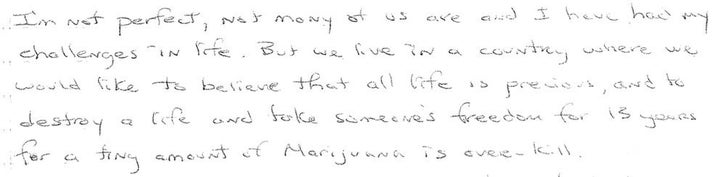 I'm not perfect, not many of us are and I have had my
challenges in life. But we live in a country where we
would like to believe that all life is precious, and to
destroy a life and take someone's freedom for 13 years
for a tiny amount of Marijuana is over-kill.